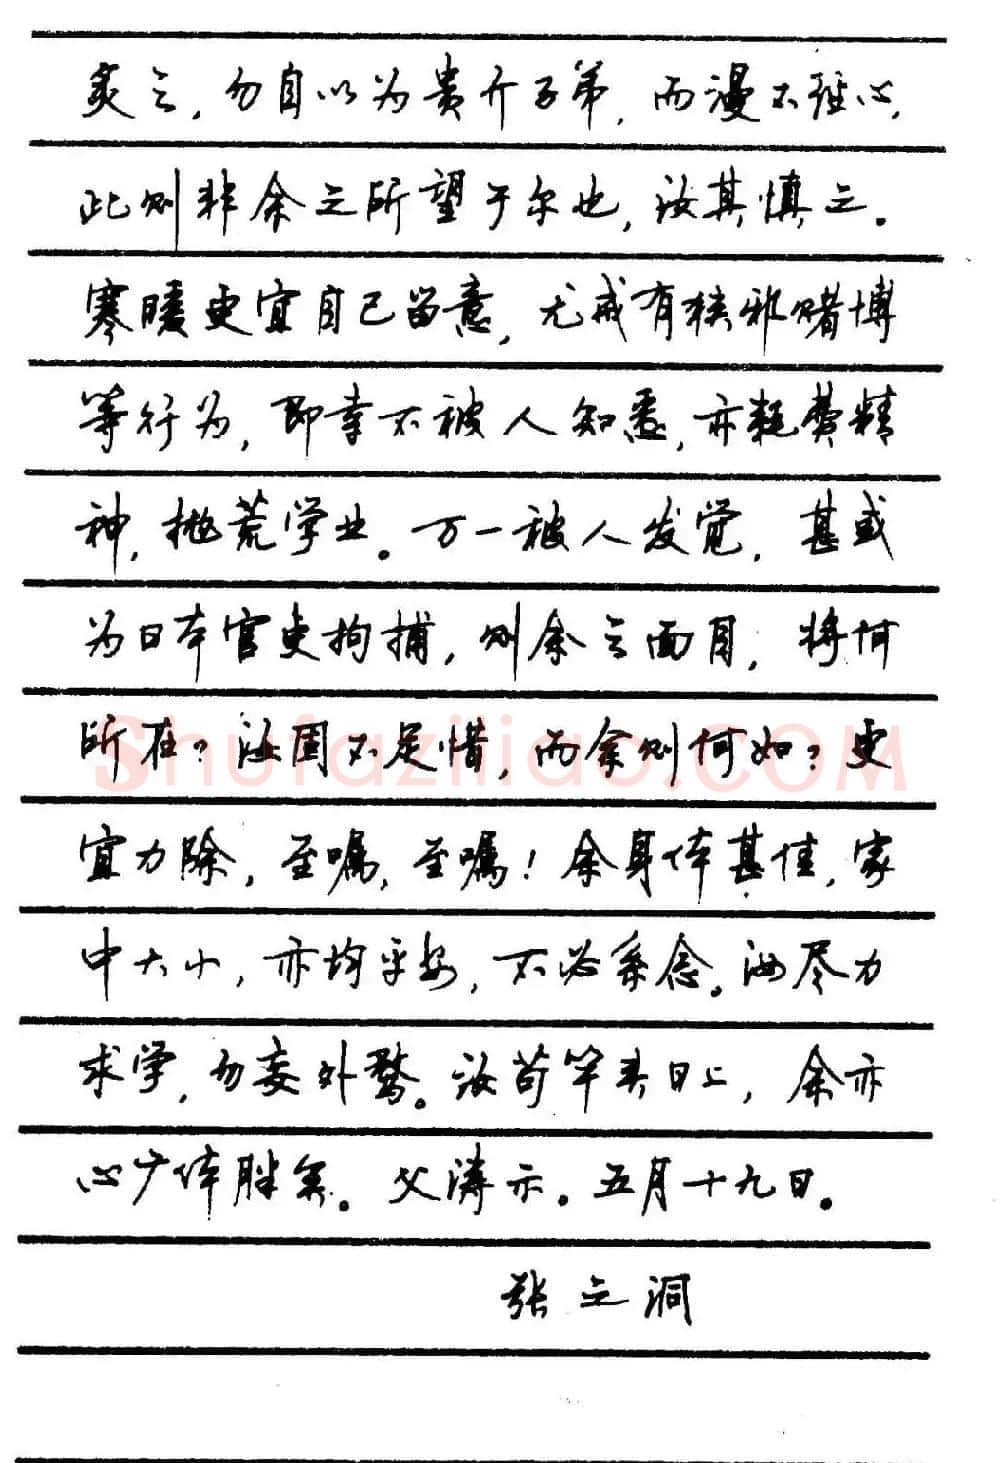 炙之，勿自以为贵介子弟，而漫不经心，
此则非余之所望于尔也，汝其慎之。
寒暖更宜自己留意，尤戒有狭邪赌博
等行为，即幸不被人知悉，亦耗费精
神，抛荒学业。万一被人发觉，甚或
为日本官吏拘捕，则余之面目，将何
所在？汝固不足惜，而余则何如？更
宜力除，至嘱，至嘱！余身体甚佳，家
中大小，亦均平安，不必系念。汝尽力
求学，勿妄外骛。汝苟竿头日上，余亦
心广体胖矣。父涛示。五月十九日。
张之洞
Shufaziliao.COM